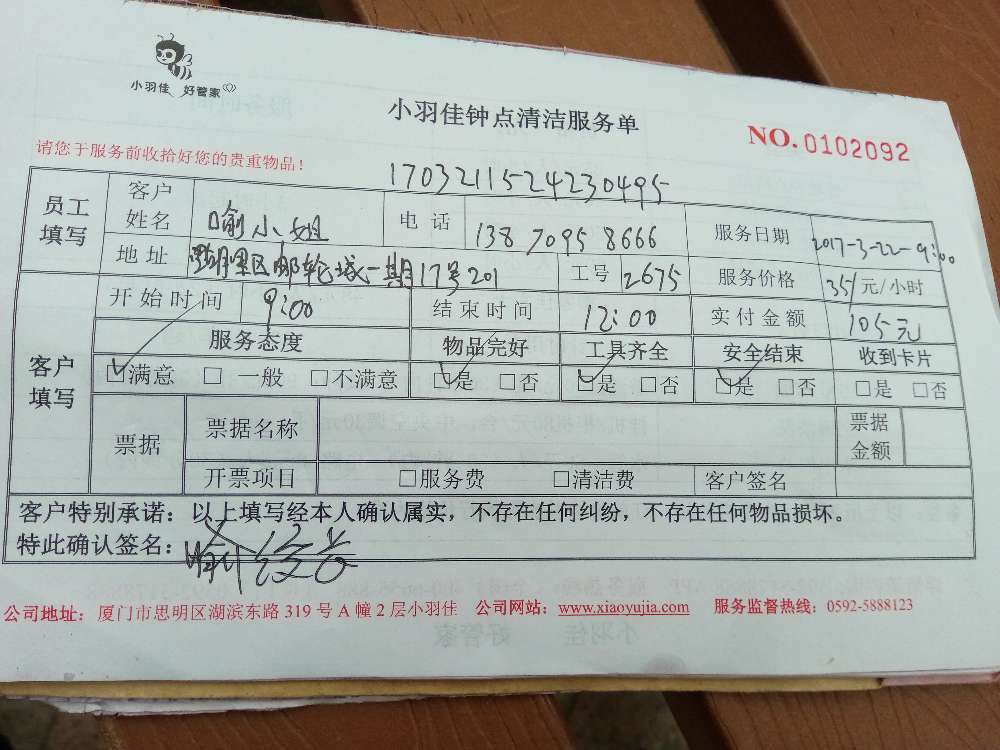 小羽佳 好管家
小羽佳钟点清洁服务单
NO.0102092
请您于服务前收拾好您的贵重物品!
1703211524230495
员工填写 客户姓名 喻小姐 电话 13870958666 服务日期 2017-3-22-9:00
地址 邮轮城一期17号201 工号 2675 服务价格 35/元/小时
客户填写 开始时间 9:00 结束时间 12:00 实付金额 105元
服务态度 物品完好 工具齐全 安全结束 收到卡片
☑满意 □一般 □不满意 ☑是 □否 ☑是 □否 ☑是 □否 □是 □否
票据 票据名称 票据金额
开票项目 □服务费 □清洁费 客户签名
客户特别承诺：以上填写经本人确认属实，不存在任何纠纷，不存在任何物品损坏。
特此确认签名：
公司地址：厦门市思明区湖滨东路319号A幢2层小羽佳 公司网站：www.xiaoyujia.com 服务监督热线：0592-5888123